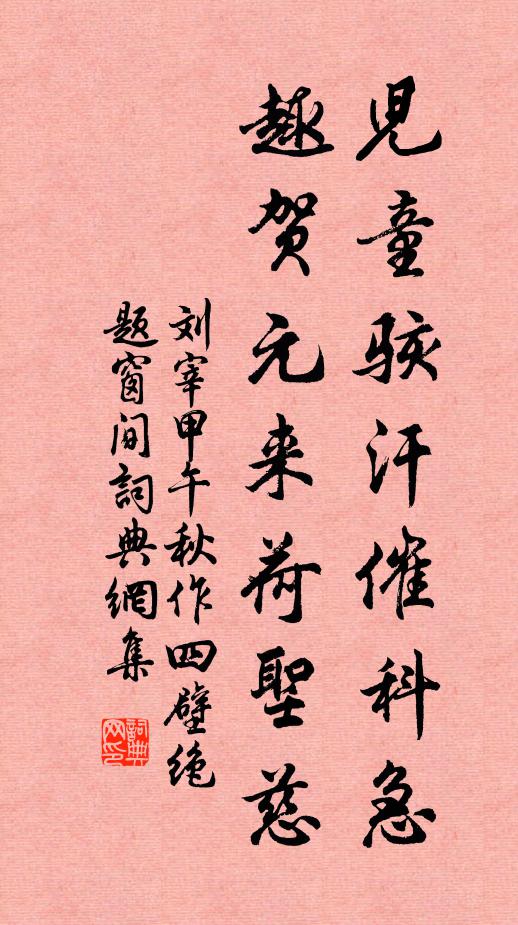 児童駭汗催科急
趣贺元来荷聖慈
刘宰甲午秋作四壁绝
题窗间詞典網集
詞典網印